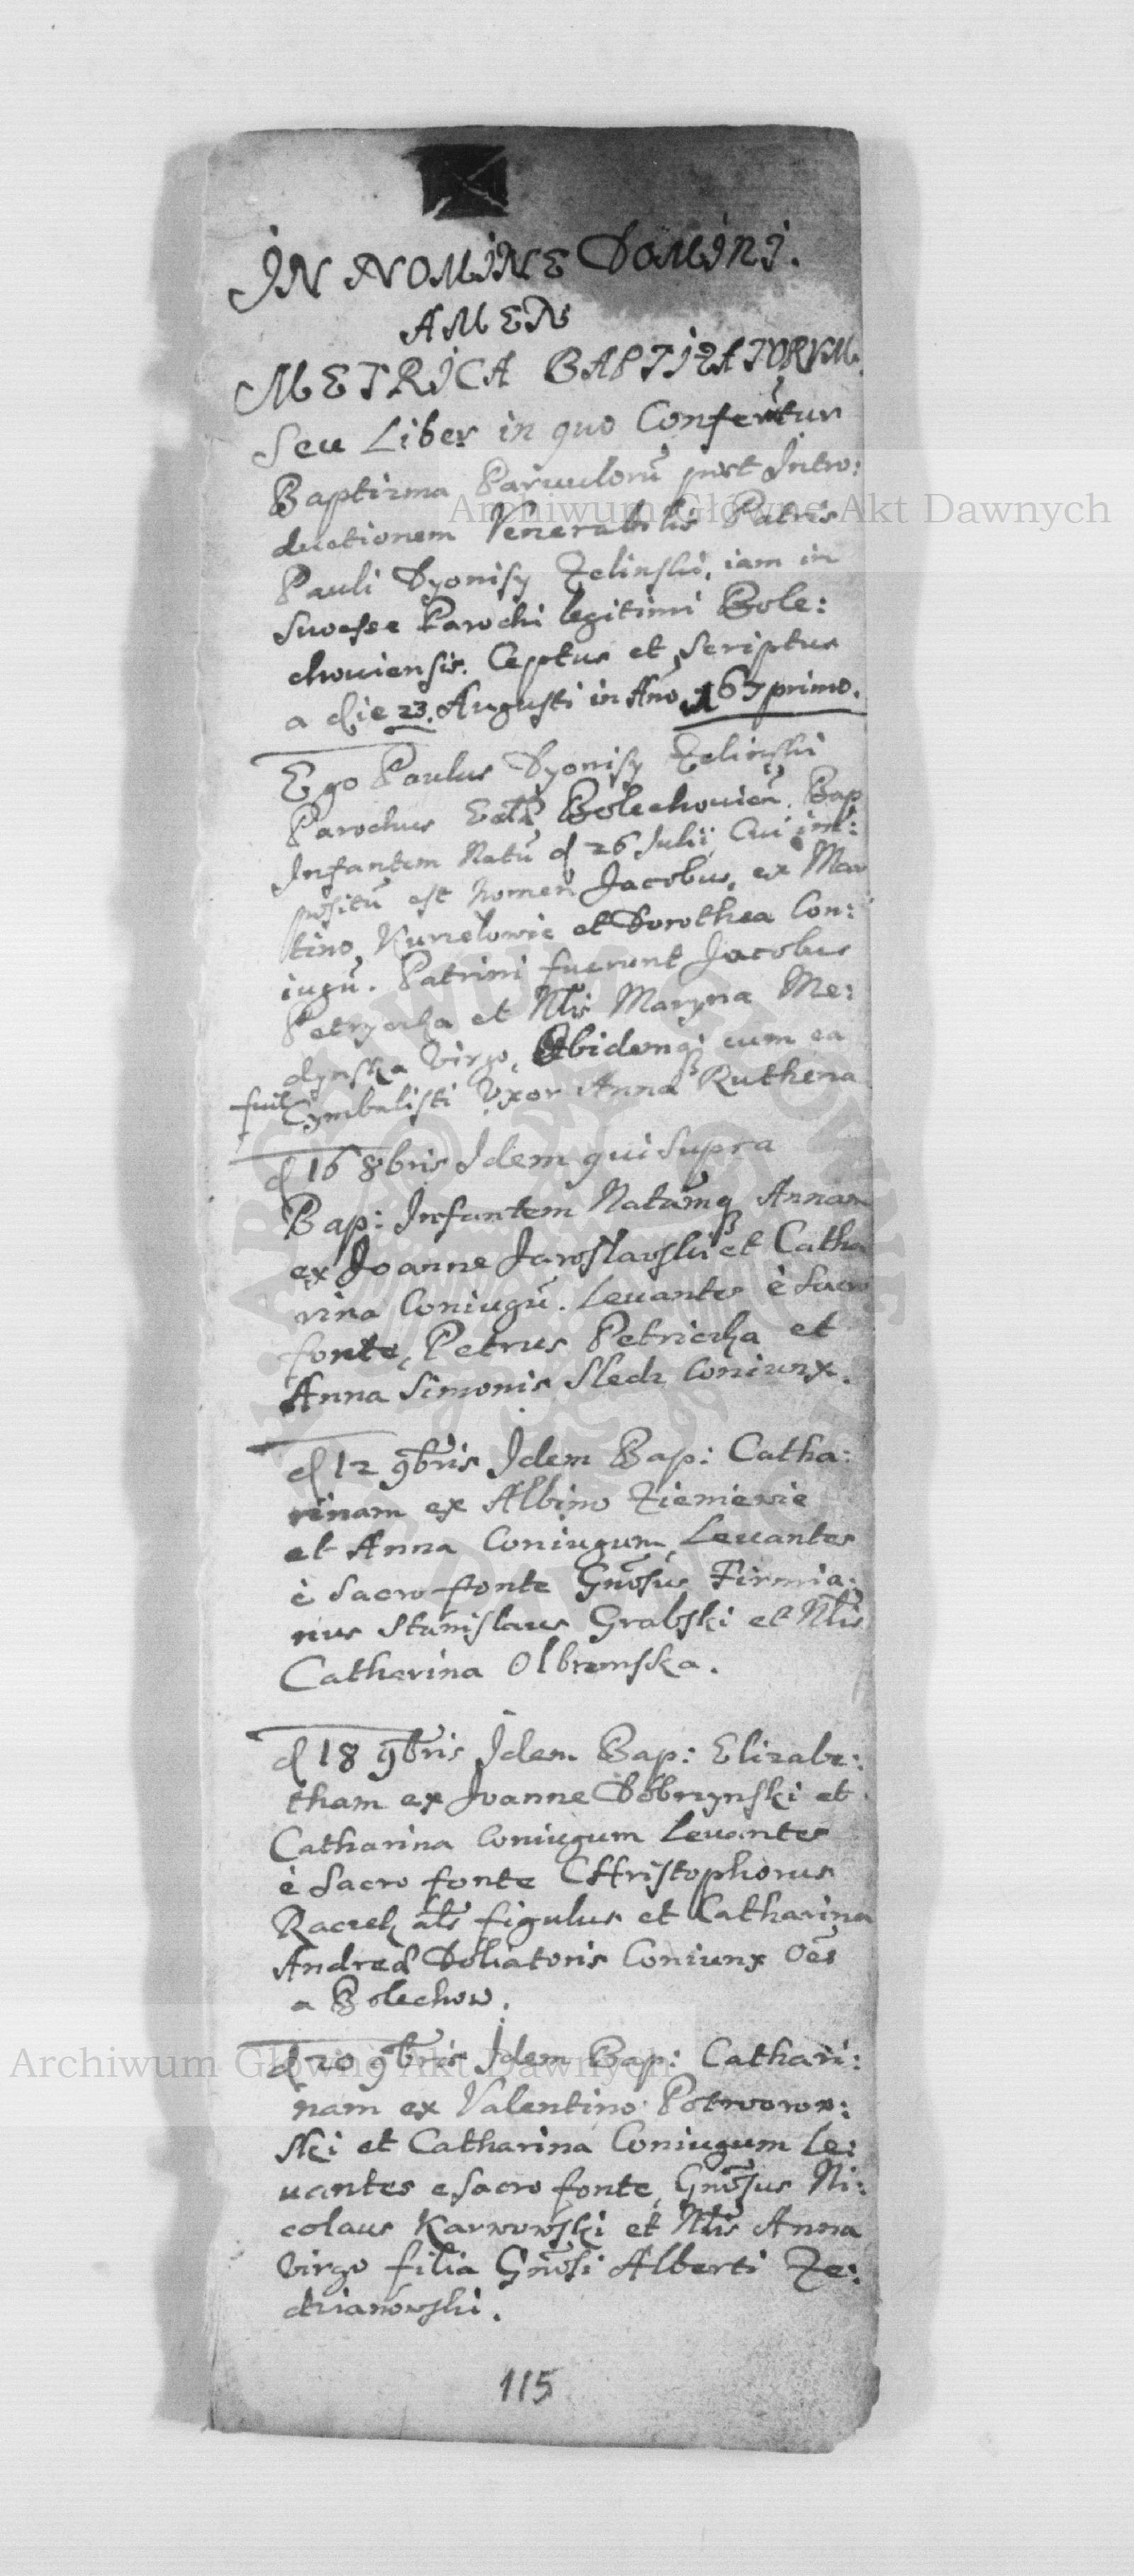 IN NOMINE DOMINI.
AMEN
METRICA BAPTIZATORVM.
Seu Liber in quo Conferũtur
Baptizma Paruulorũ post Intro:
ductionem Venerabilis Patris
Pauli Dyonisy Zelinski, iam in
Parochi legitimi Bole:
chouiensis. Ceptus et Scriptus
a die 23. Augusti in Año 167primo.
Ego Paulus Dyonisy Zelinski
Parochus Bolechouieñ. Bap
Infantem Natũ d 26 Julij, Cui im:
positũ est nomen Jacobus, ex Mar
tino et Dorothea Con:
iugũ. Patrini fuerunt Jacobus
Petryczka et Nlis Maryna Me:
dynska Virgo, cum ea
fuit Cymbalisti Vxor Anna Ruthena
d 16 8bris Idem qui supra
Bap: Infantem Natamq Annam
ex Joanne Jaroslawski et Catha
rina Coniugũ. Leuantes è Sacro
fonte, Petrus Petriczka et
Anna Simonis Sledz Coniunx.
d 12 9bris Idem Bap: Catha:
rinam ex Albino Ziemiewic
et Anna Coniugum, Leuantes
è Sacro fonte Gnosus Firmia:
nus Stanislaus Grabski et Nlis
Catharina Olbromska.
d 18 9bris Idem Bap: Elizabe:
tham ex Joanne Dobrzynski et
Catharina Coniugum Leuantes
è Sacro fonte CHristophorus
Raczek als figulus et Catharina
Andreæ Doliatoris Coniunx Oẽs
a Bolechow.
d 20 9bris Idem Bap: Cathari:
nam ex Valentino Potworow:
ski et Catharina Coniugum Le:
uantes e sacro fonte, Gnosus Ni:
colaus Karwowski et Nlis Anna
Virgo filia Gnosi Alberti Ze:
drianowski.
115
Archiwum Główne Akt Dawnych
Archiwum Główne Akt Dawnych